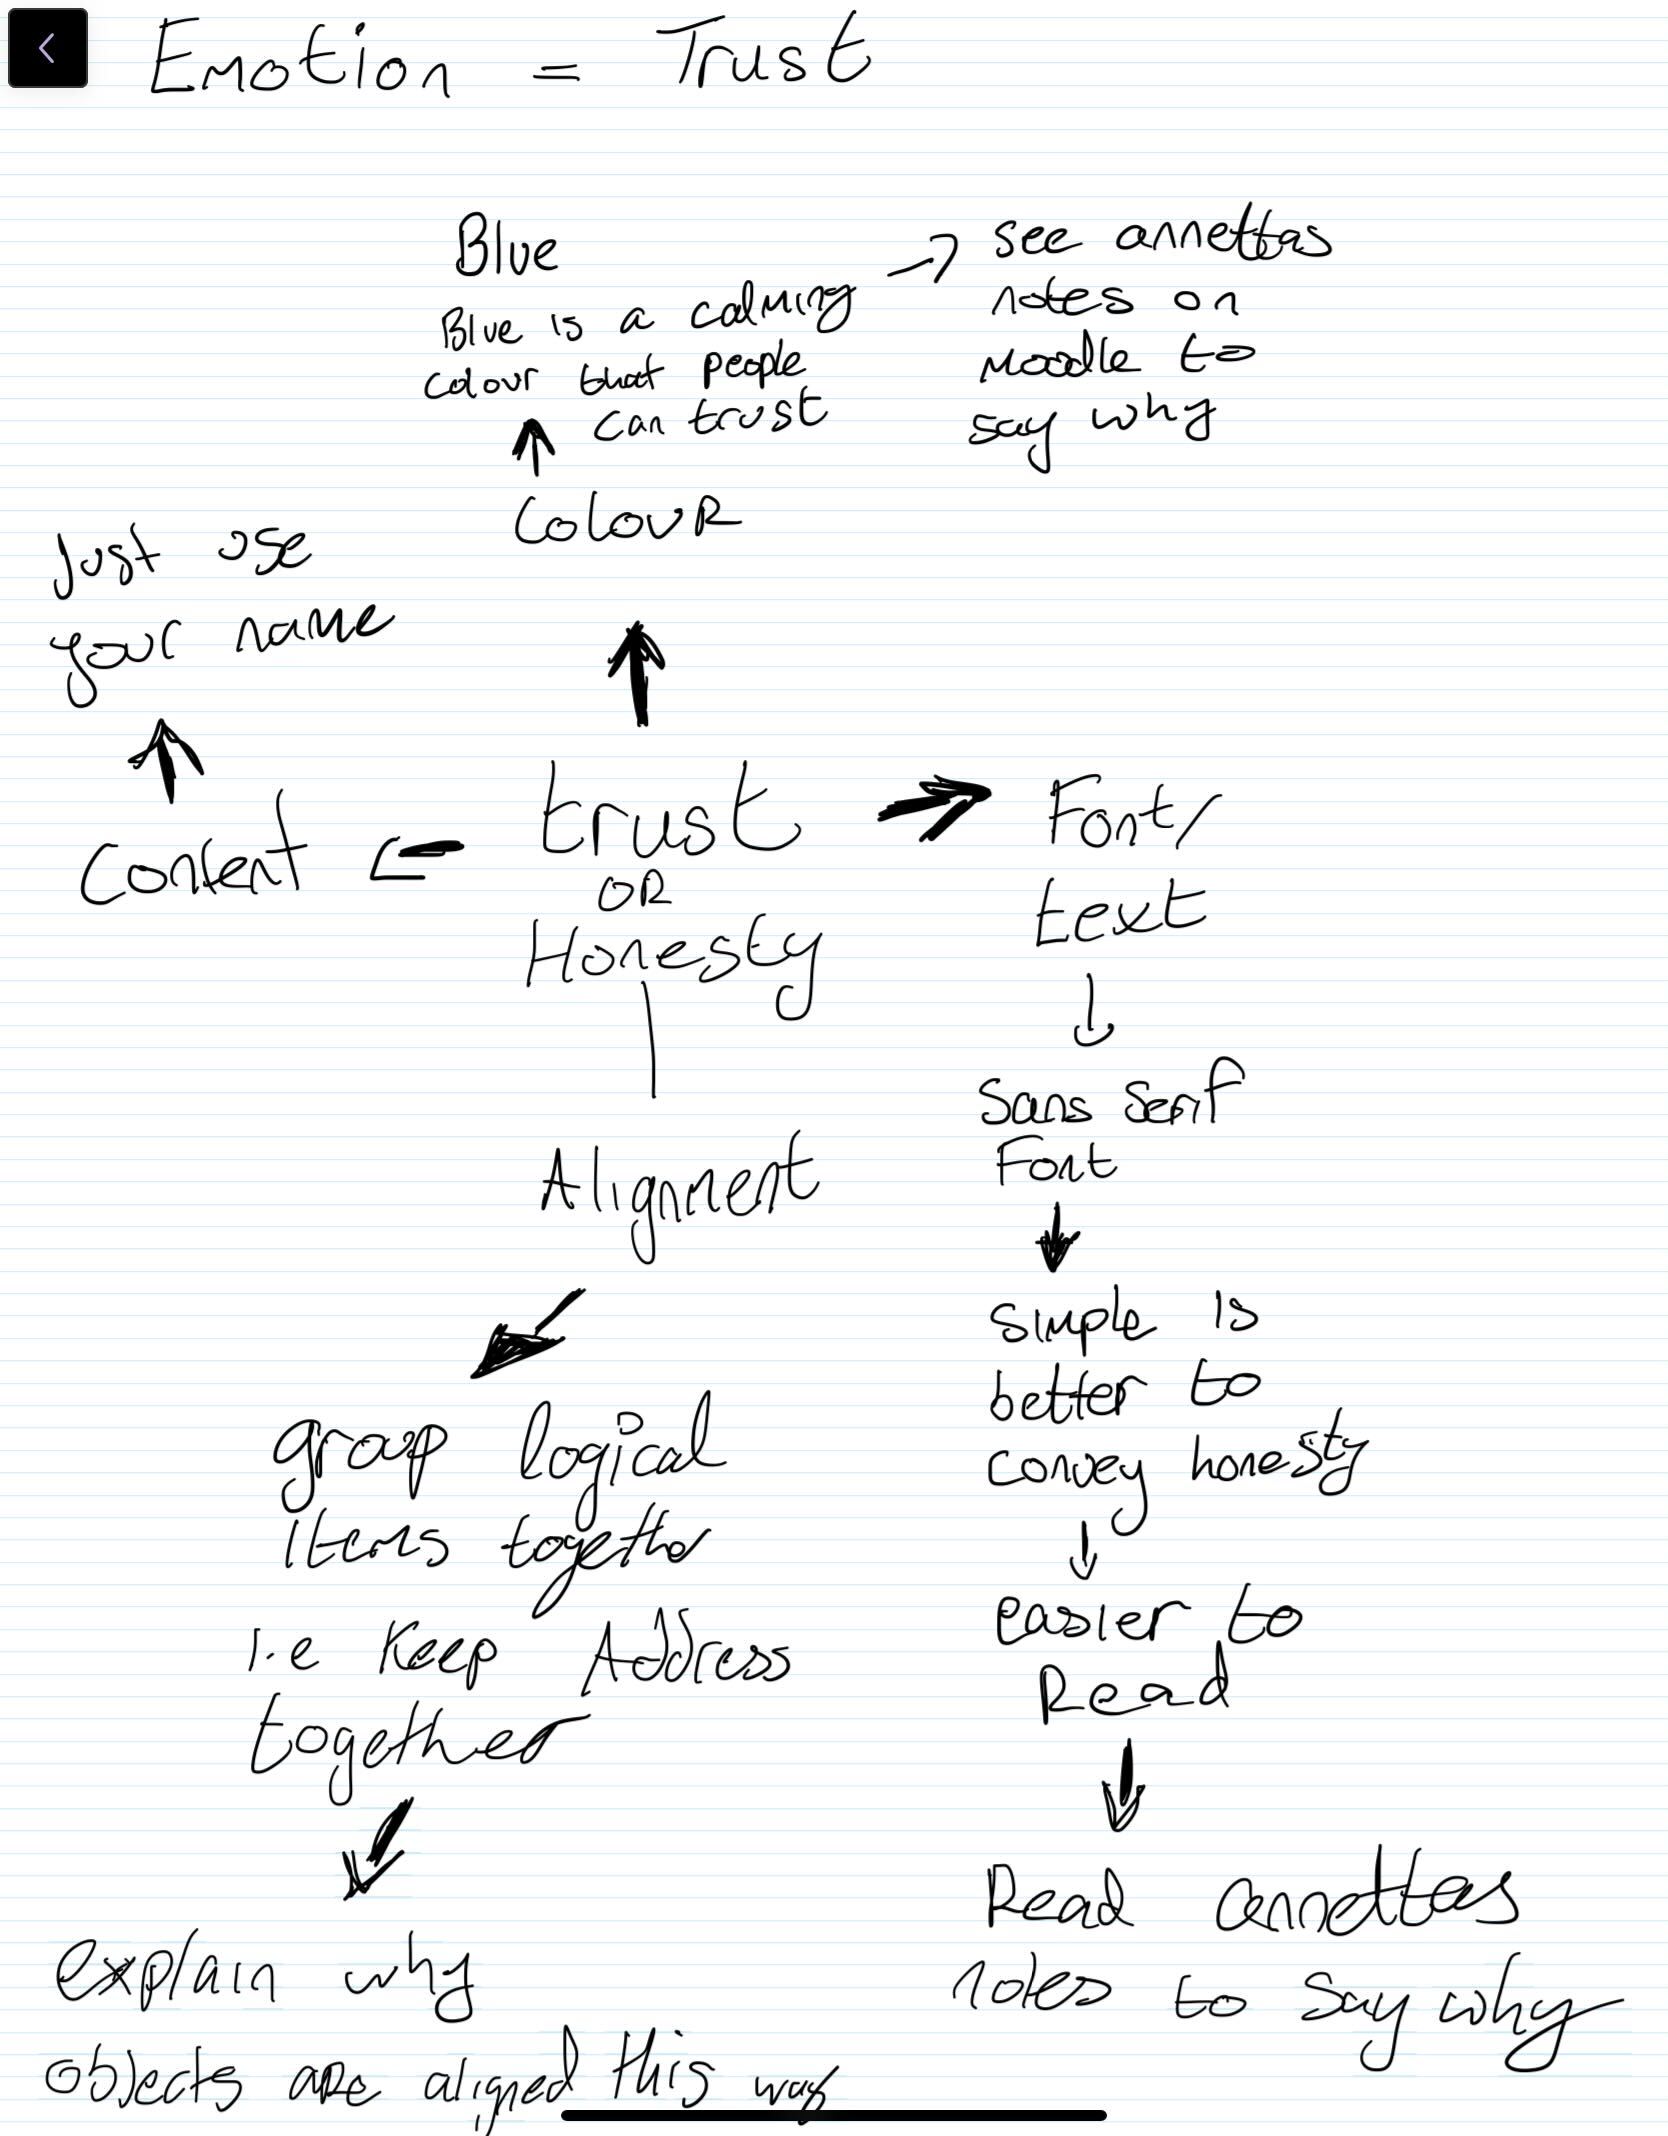 Emotion = Trust
Blue
Blue is a calming
colour that people
can trust
see annettas
notes on
Moodle to
say why
Colour
Just use
your name
Content
trust
OR
Honesty
Font/
text
Sans Serif
Font
Simple is
better to
convey honesty
easier to
Read
Read annettas
notes to say why
Alignment
group logical
items together
i.e Keep Address
together
explain why
objects are aligned this way